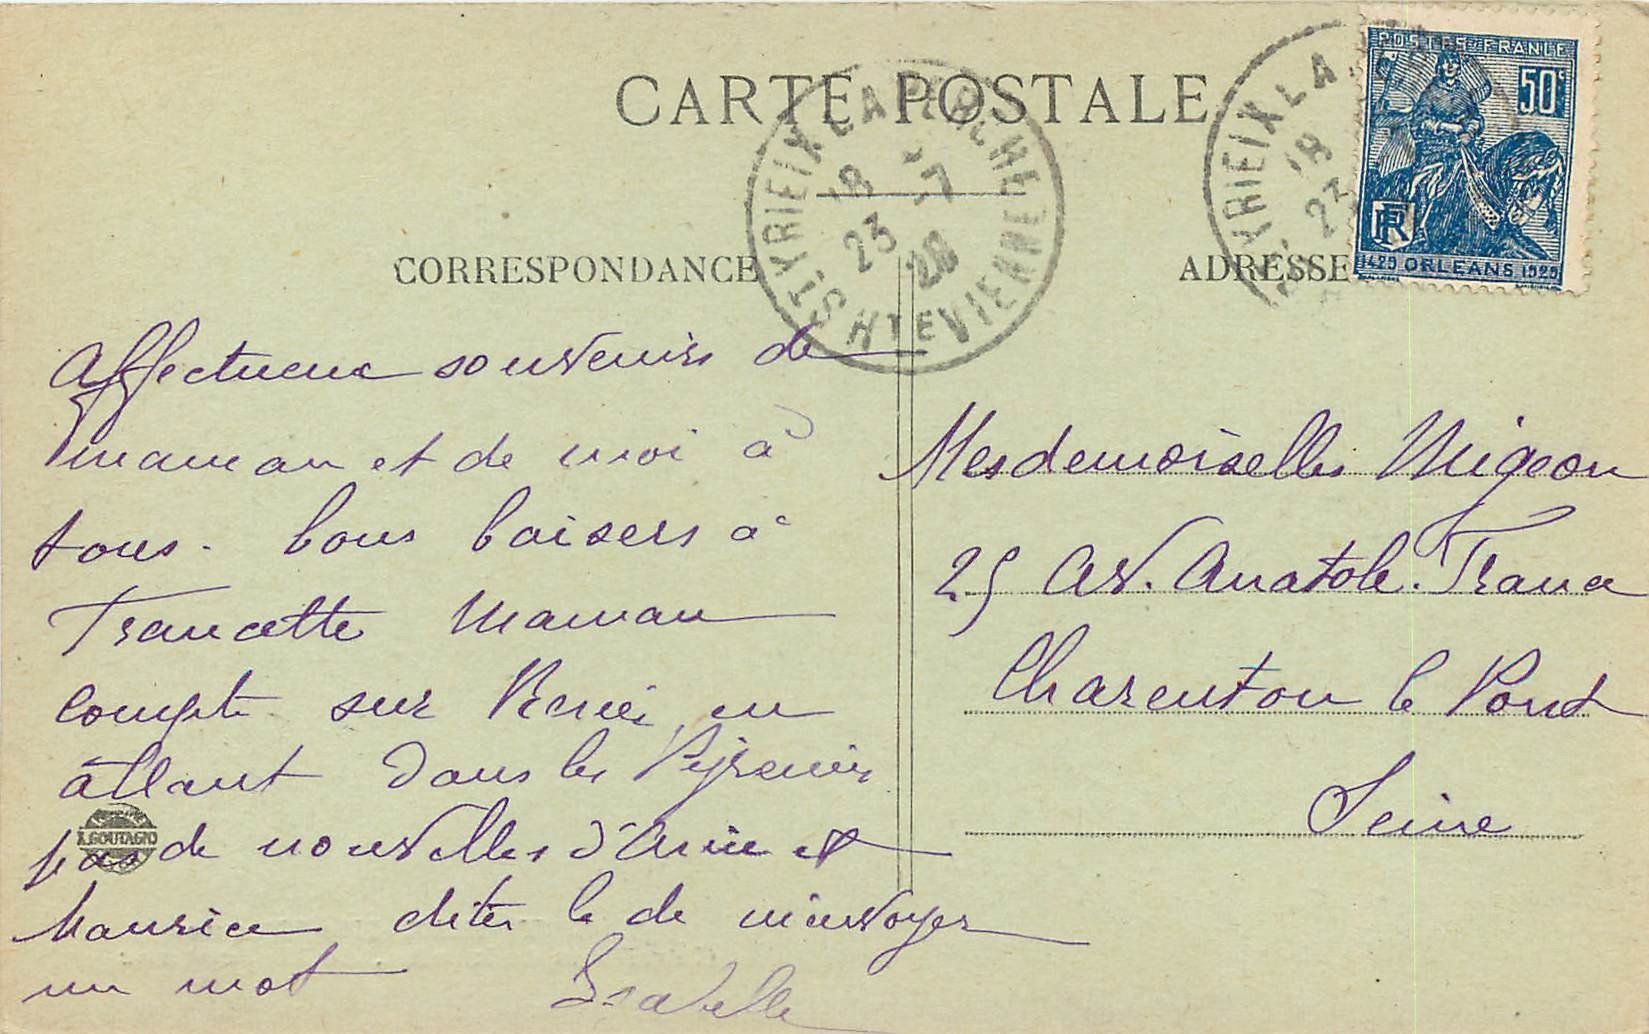 CARTE POSTALE
ST YRIEIX LA PERCHE
18 -7
23
HTE VIENNE
YRIEIX LA
18
23
POSTES FRANCE
50c
RF
1429 ORLEANS 1929
CORRESPONDANCE
ADRESSE
Affectueux souvenirs de
maman et de moi à
tous. bons baisers à
Francette Maman
compte sur Renée en
allant dans les Pyrénées
pas de nouvelles d'Annie et
Maurice dites le de m'envoyer
un mot Isabelle
A. GOUTAGNY
Mesdemoiselles Migeon
25 Av. Anatole France
Charenton le Pont
Seine